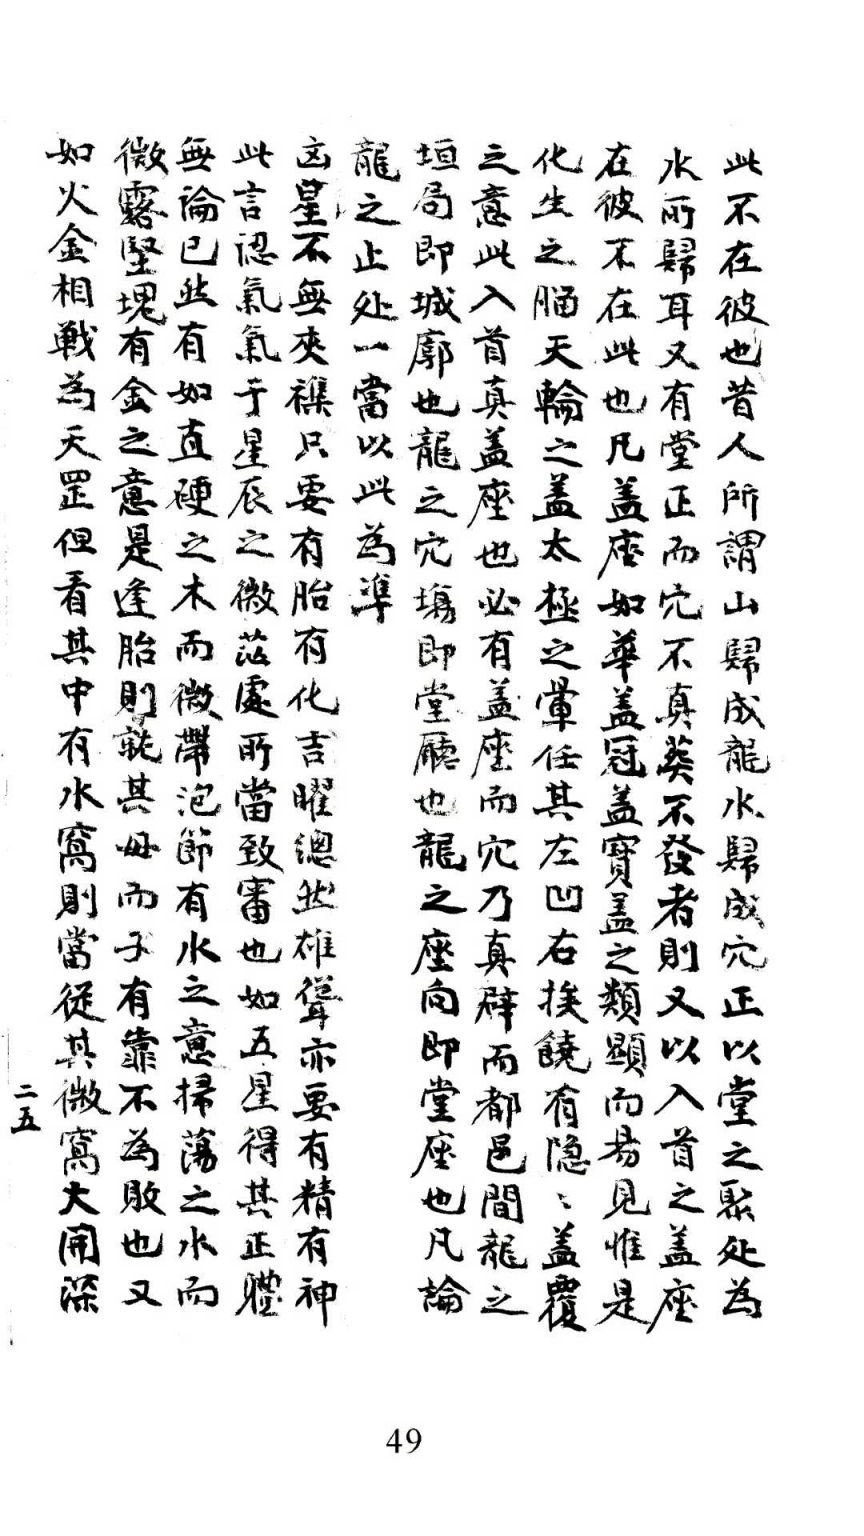 此不在彼也昔人所謂山歸成龍水歸成穴正以堂之聚处為
水所歸耳又有堂正而穴不真葵不發者則又以入首之盖座
在彼不在此也凡盖座如華盖冠盖寶盖之類顯而易見惟是
化生之腦天輪之盖太極之暈任其左凹右挨饒有隐〻盖覆
之意此入首真盖座也必有盖座而穴乃真辟而都邑間龍之
垣局即城廓也龍之穴塲即堂廳也龍之座向即堂座也凡論
龍之止处一當以此為準
凶星不無夾襍只要有胎有化吉曜總然雄聳亦要有精有神
此言認氣氣于星辰之微茫處所當致審也如五星得其正軆
無論已然有如直硬之木而微帶泡節有水之意掃蕩之水而
微露堅塊有金之意是逢胎則就其母而子有靠不為敗也又
如火金相戰為天罡但看其中有水窩則當從其微窩大開深
二五
49